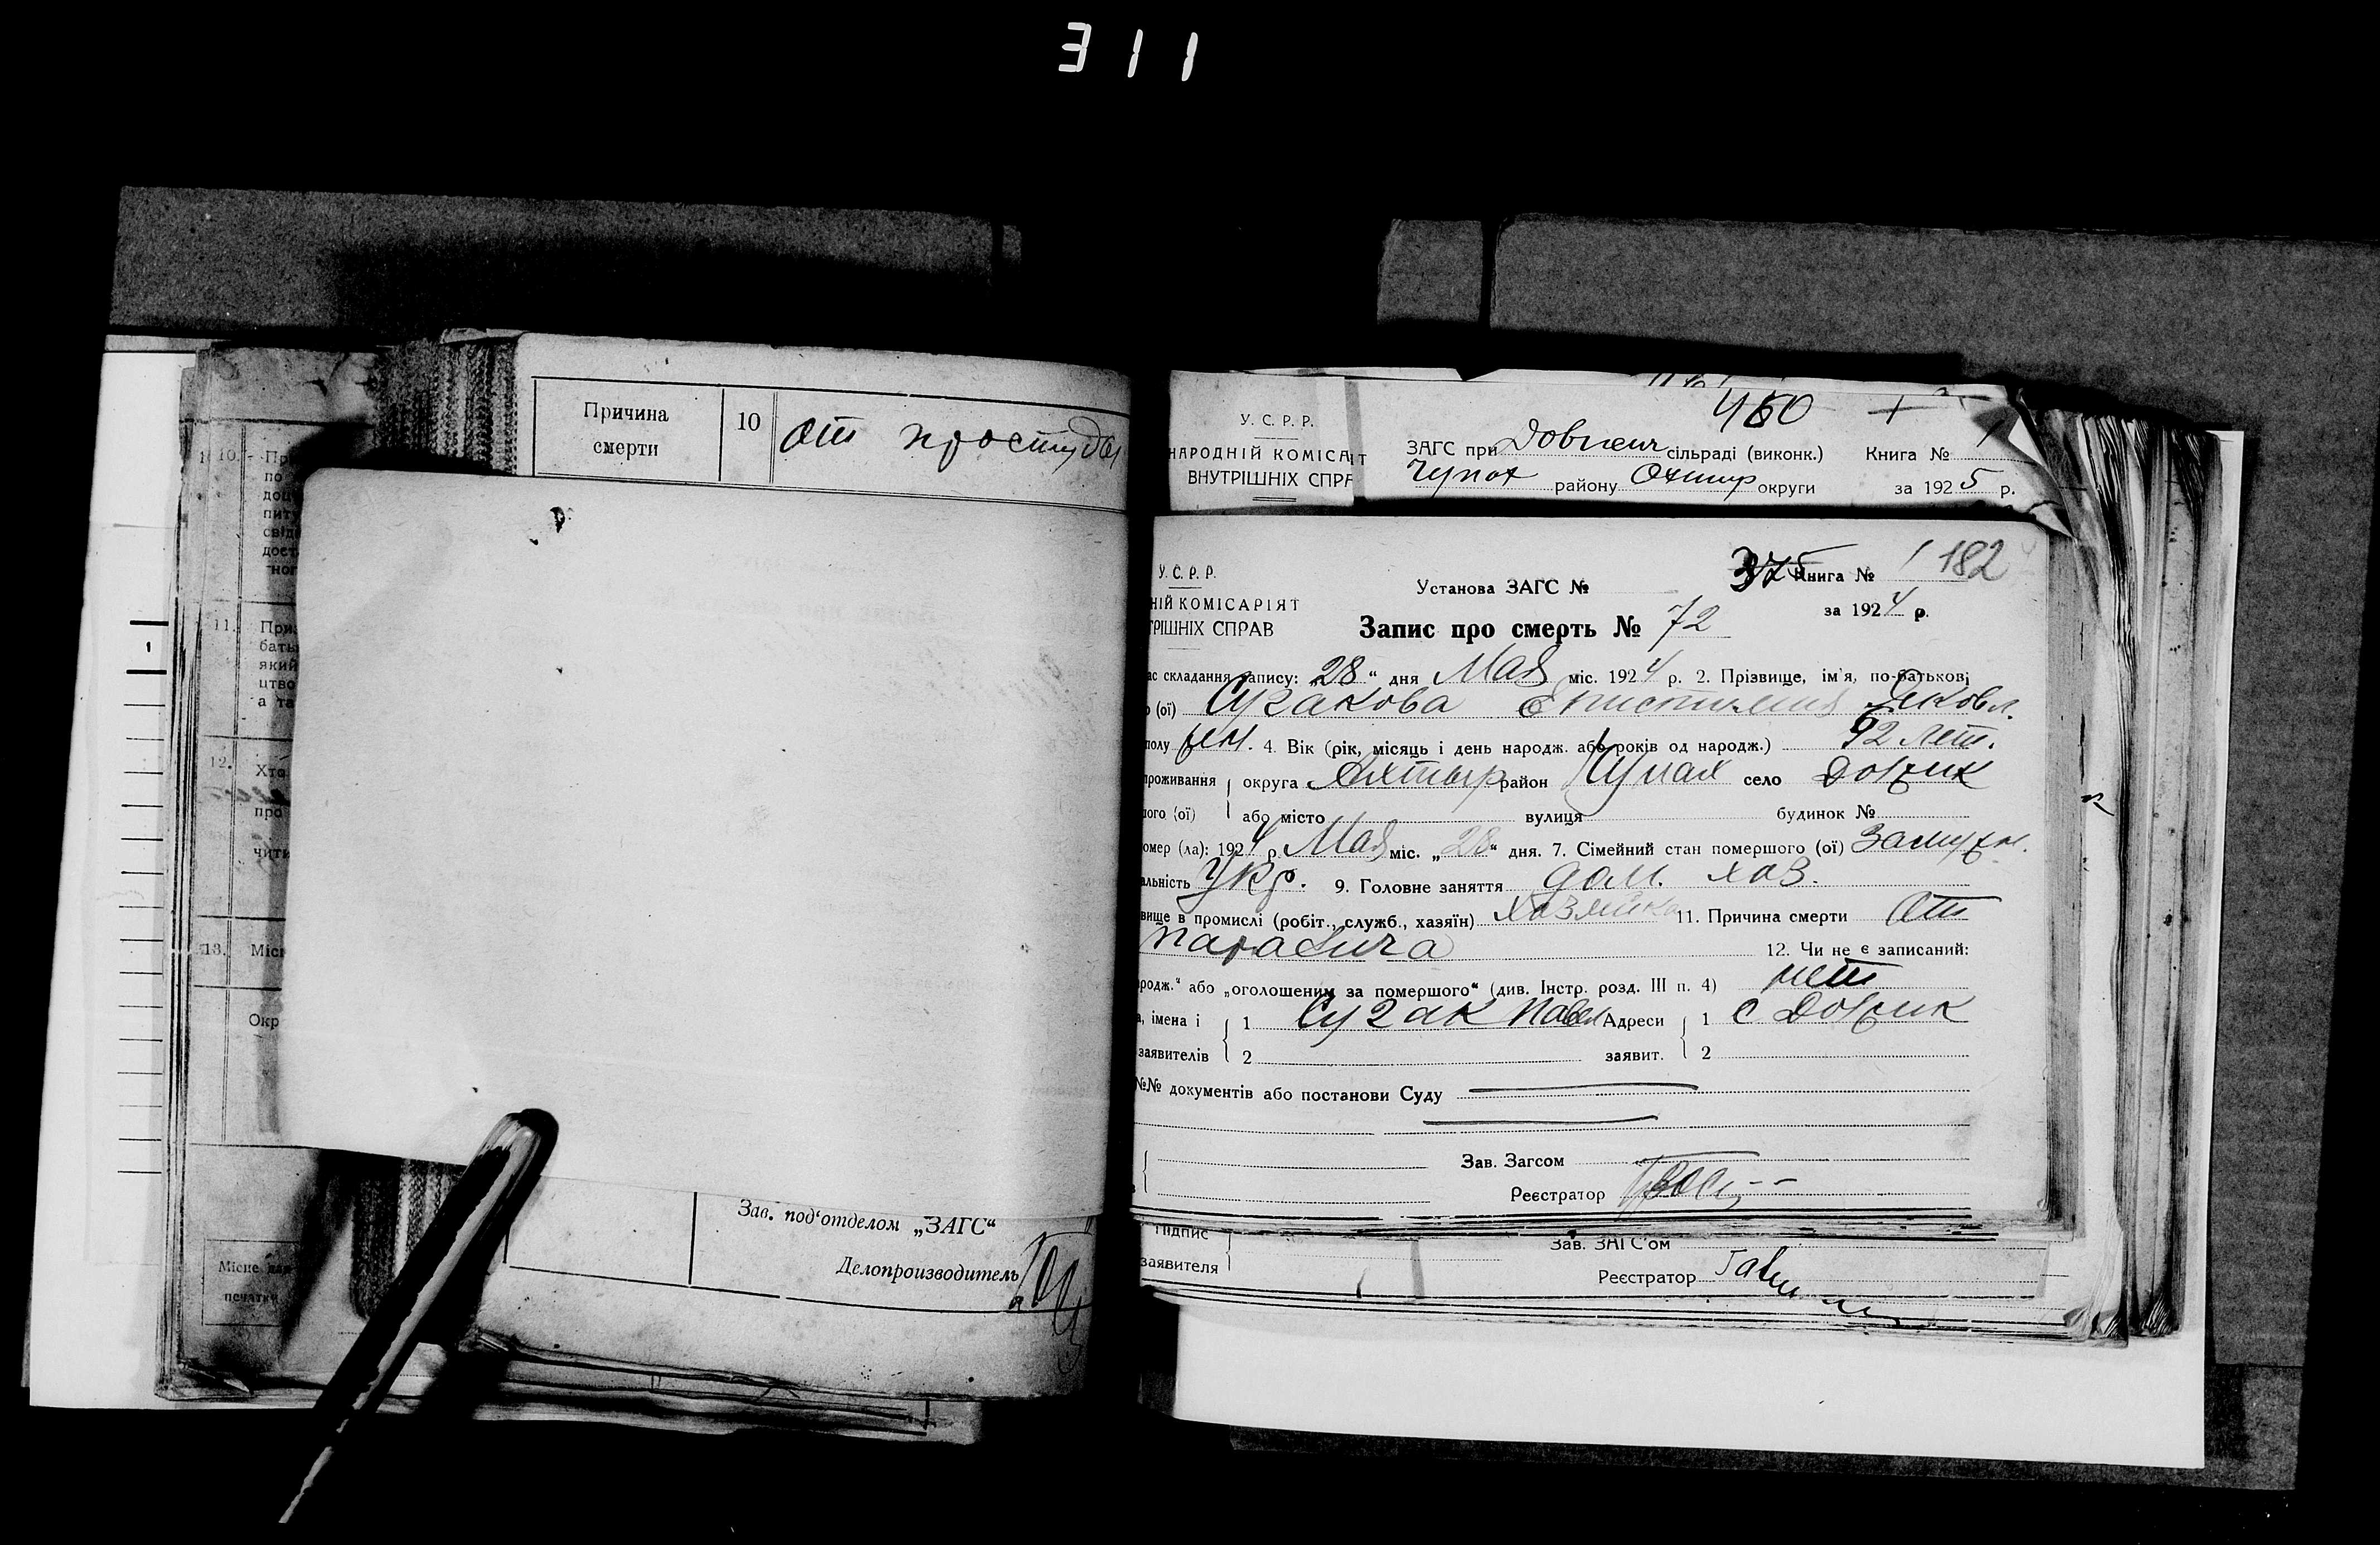 311
Причина
смерти
10
от простуды
10.
11.
12.
13.
Зав. под‘отделом „ЗАГС“
Делопроизводитель
Місце для
печатки
У. С. Р. Р.
НАРОДНІЙ КОМІСАРІЯТ
ВНУТРІШНІХ СПРАВ
460 +
ЗАГС при сільраді (виконк.) Книга № 1
району Охтир округи за 1925 р.
У. С. Р. Р.
НІЙ КОМІСАРІЯТ
ТРІШНІХ СПРАВ
Установа ЗАГС №
375 Книга № 1 182
за 1924 р.
Запис про смерть № 72
ас складання запису: „28“ дня Мая міс. 1924 р. 2. Прізвище, ім'я, по-батькові
о (ої) Сугакова Епистимия Яковл.
полу жен. 4. Вік (рік, місяць і день народж. або років од народж.) 92 лет.
проживання округа Ахтыр район село Добрик
ого (ої) або місто вулиця будинок №
омер (ла): 1924 р. Мая міс. „28“ дня. 7. Сімейний стан помершого (ої) Замужн.
альність Укр. 9. Головне заняття дом. хоз.
вище в промислі (робіт., служб., хазяїн) Хозяйка 11. Причина смерти От
паралича 12. Чи не є записаний:
родж.“ або „оголошеним за помершого“ (див. Інстр. розд. III п. 4) нет
а, імена і 1 Сугак Павел Адреси 1 с Добрик
заявителів 2 заявит. 2
№№ документів або постанови Суду
Зав. Загсом
Реєстратор
Підпис
заявителя
Зав. ЗАГС'ом
Реєстратор